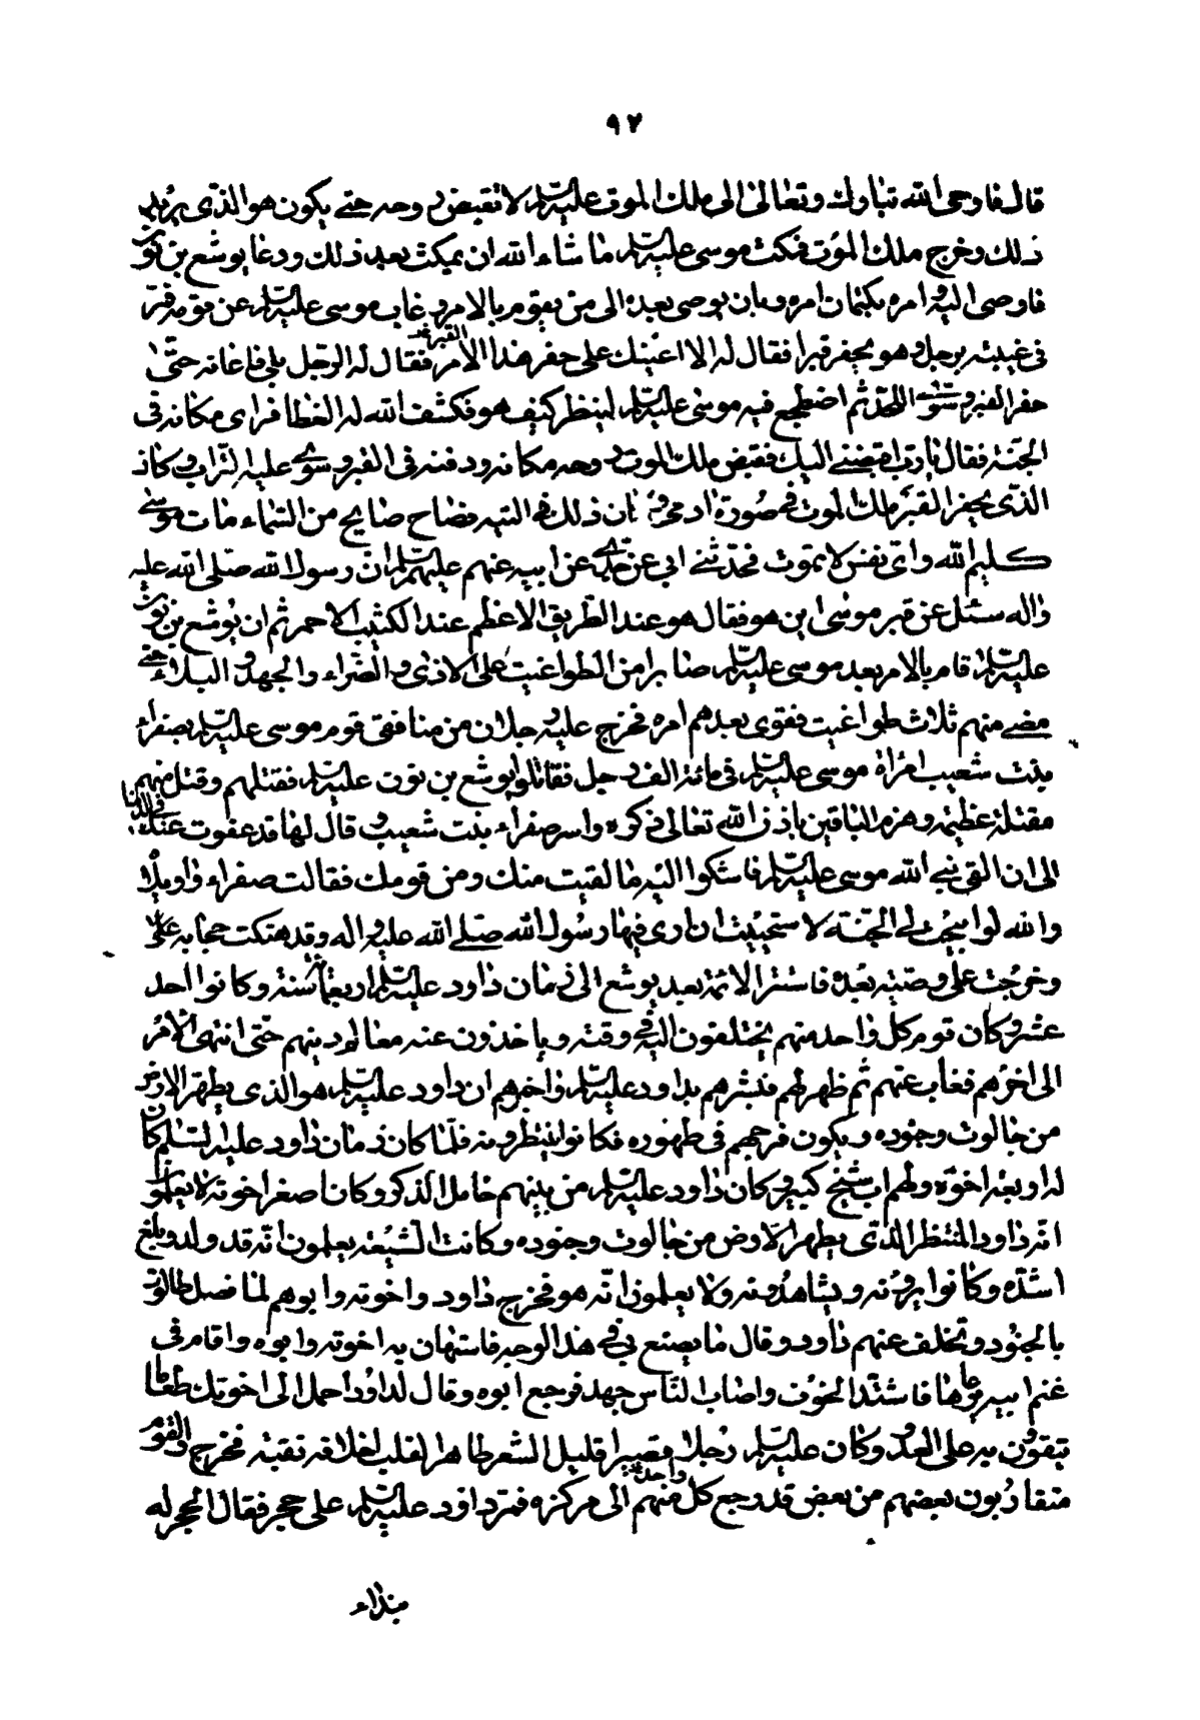 ٩٧
قال فاوحى الله تبارك وتعالى الى ملك الموت عليه السلام لا تقبض روحه حتى يكون هو الذى يريد
ذلك وخرج ملك الموت فمكث موسى عليه السلام ما شاء الله ان يمكث بعد ذلك ودعا يوشع بن نون
فاوصى اليه وامره بكتمان امره وبان يوصى بعده الى من يقوم بالامر وغاب موسى عليه السلام عن قومه فمر
فى غيبته برجل وهو يحفر قبرا فقال له الا اعينك على حفر هذا الامر القبر فقال له الرجل بلى فاعانه حتى
حفر القبر وسوى اللحد ثم اضطجع فيه موسى عليه السلام لينظر كيف هو فكشف الله له الغطا فراى مكانه فى
الجنة فقال يا رب اقبضنى اليك فقبض ملك الموت روحه مكانه ودفنه فى القبر وسوى عليه التراب وكان
الذى يحفر القبر ملك الموت فى صورة ادمى وكان ذلك فى التيه فصاح صايح من السماء مات موسى
كليم الله واى نفس لا تموت فحدثنى ابى عن جدى عن ابيه عنهم عليهم السلام ان رسول الله صلى الله عليه
واله سئل عن قبر موسى اين هو فقال هو عند الطريق الاعظم عند الكثيب الاحمر ثم ان يوشع بن نون
عليه السلام قام بالامر بعد موسى عليه السلام صابرا من الطواغيت على الاذى والضراء والجهد والبلاء حتى
مضى منهم ثلاث طواغيت فقوى بعدهم امره فخرج عليه رجلان من منافقى قوم موسى عليه السلام بصفراء
بنت شعيب امرأة موسى عليه السلام فى مائة الف رجل فقاتلوا يوشع بن نون عليه السلام فقتلهم وقتل منهم
مقتلة عظيمة وهزم الباقين باذن الله تعالى ذكره واسر صفراء بنت شعيب وقال لها قد عفوت عنك فى الدنيا
الى ان القى نبى الله موسى عليه السلام فاشكوا اليه ما لقيت منك ومن قومك فقالت صفراء واويلاه
والله لو ابيحت لى الجنة لاستحييت ان ارى فيها رسول الله صلى الله عليه واله وقد هتكت حجابه
وخرجت على وصيه بعده فاستتر الائمة بعد يوشع الى زمان داود عليه السلام اربعمائة سنة وكانوا احد
عشر وكان قوم كل واحد منهم يختلفون اليه فى وقته وياخذون عنه معالم دينهم حتى انتهى الامر
الى اخرهم فغاب عنهم ثم ظهر لهم فبشرهم بداود عليه السلام واخبرهم ان داود عليه السلام هو الذى يطهر الارض
من جالوت وجنوده ويكون فرجهم فى ظهوره فكانوا ينتظرونه فلما كان زمان داود عليه السلم كان
له اربعة اخوة ولهم اب شيخ كبير وكان داود عليه السلام من بينهم خامل الذكر وكان اصغر اخوته لا يعلمون
انه داود المنتظر الذى يطهر الارض من جالوت وجنوده وكانت الشيعة يعلمون انه قد ولد وبلغ
اشده وكانوا يرونه ويشاهدونه ولا يعلمون انه هو فخرج داود واخوته وابوهم لما فصل طالوت
بالجنود وتخلف عنهم داود وقال ما يصنع بى فى هذا الوجه فاستهان به اخوته وابوه واقام فى
غنم ابيه يرعاها فاشتد الخوف واصاب الناس جهد فرجع ابوه وقال لداود احمل الى اخوتك طعاما
يتقوون به على العدو وكان عليه السلام رجلا قصيرا قليل الشعر طاهر القلب اخلاقه نقية فخرج والقوم
متقاربون بعضهم من بعض قد رجع كل واحد منهم الى مركزه فمر داود عليه السلام على حجر فقال الحجر له
بنداء